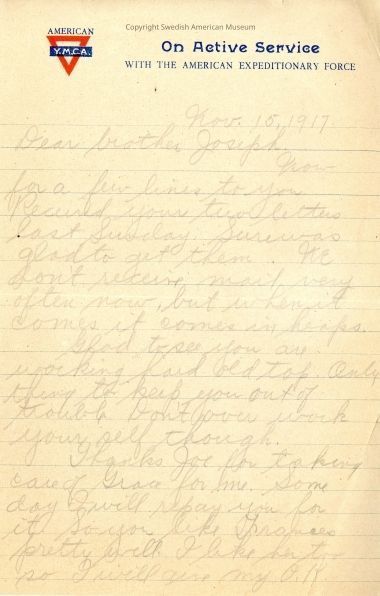 Copyright Swedish American Museum
AMERICAN
Y.M.C.A.
On Active Service
WITH THE AMERICAN EXPEDITIONARY FORCE
Nov. 15, 1917.
Dear brother Joseph,
Now
for a few lines to you
Received your two letters
last Sunday. Sure was
glad to get them. We
don't receive mail very
often now, but when it
comes it comes in heaps.
Glad to see you are
working hard old top. Only
thing to keep you out of
trouble. Don't over work
your self though.
Thanks Joe for taking
care of Grace for me. Some
day I will repay you for
it. So you like Frances
pretty well. I like her too
so I will give my O.K.